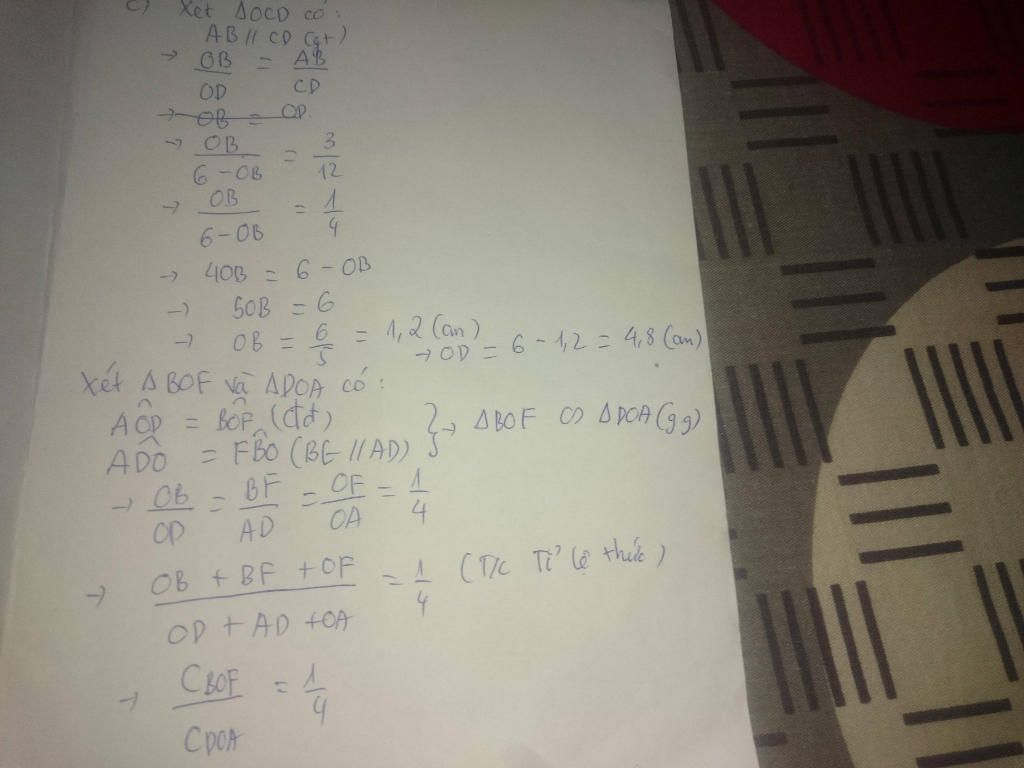 c) Xét ΔOCD có:
AB // CD (gt)
→ OB/OD = AB/CD
→ OB = OD.
→ OB/(6 - OB) = 3/12
→ OB/(6 - OB) = 1/4
→ 4OB = 6 - OB
→ 5OB = 6
→ OB = 6/5 = 1,2 (cm)
→ OD = 6 - 1,2 = 4,8 (cm)
Xét Δ BOF và ΔDOA có:
AÔD = BÔF (đđ)
ADÔ = FB̂O (BE // AD) } → ΔBOF ∽ ΔDOA (gg)
→ OB/OD = BF/AD = OF/OA = 1/4
→ (OB + BF + OF)/(OD + AD + OA) = 1/4 (T/c Tỉ lệ thức)
→ CBOF/CDOA = 1/4